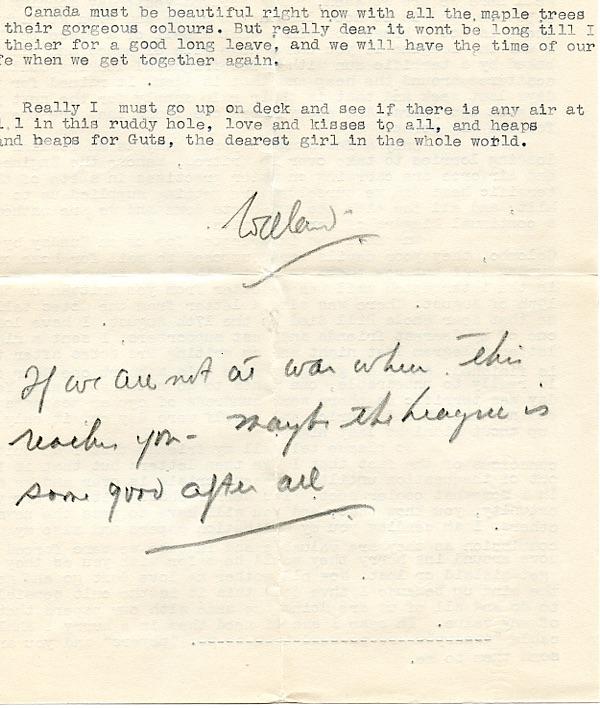 Canada must be beautiful right now with all the maple trees
their gorgeous colours. But really dear it wont be long till I
theier for a good long leave, and we will have the time of our
fe when we get together again.
Really I must go up on deck and see if there is any air at
l l in this ruddy hole, love and kisses to all, and heaps
and heaps for Guts, the dearest girl in the whole world.
If we are not at war when this
reaches you - maybe the League is
some good after all